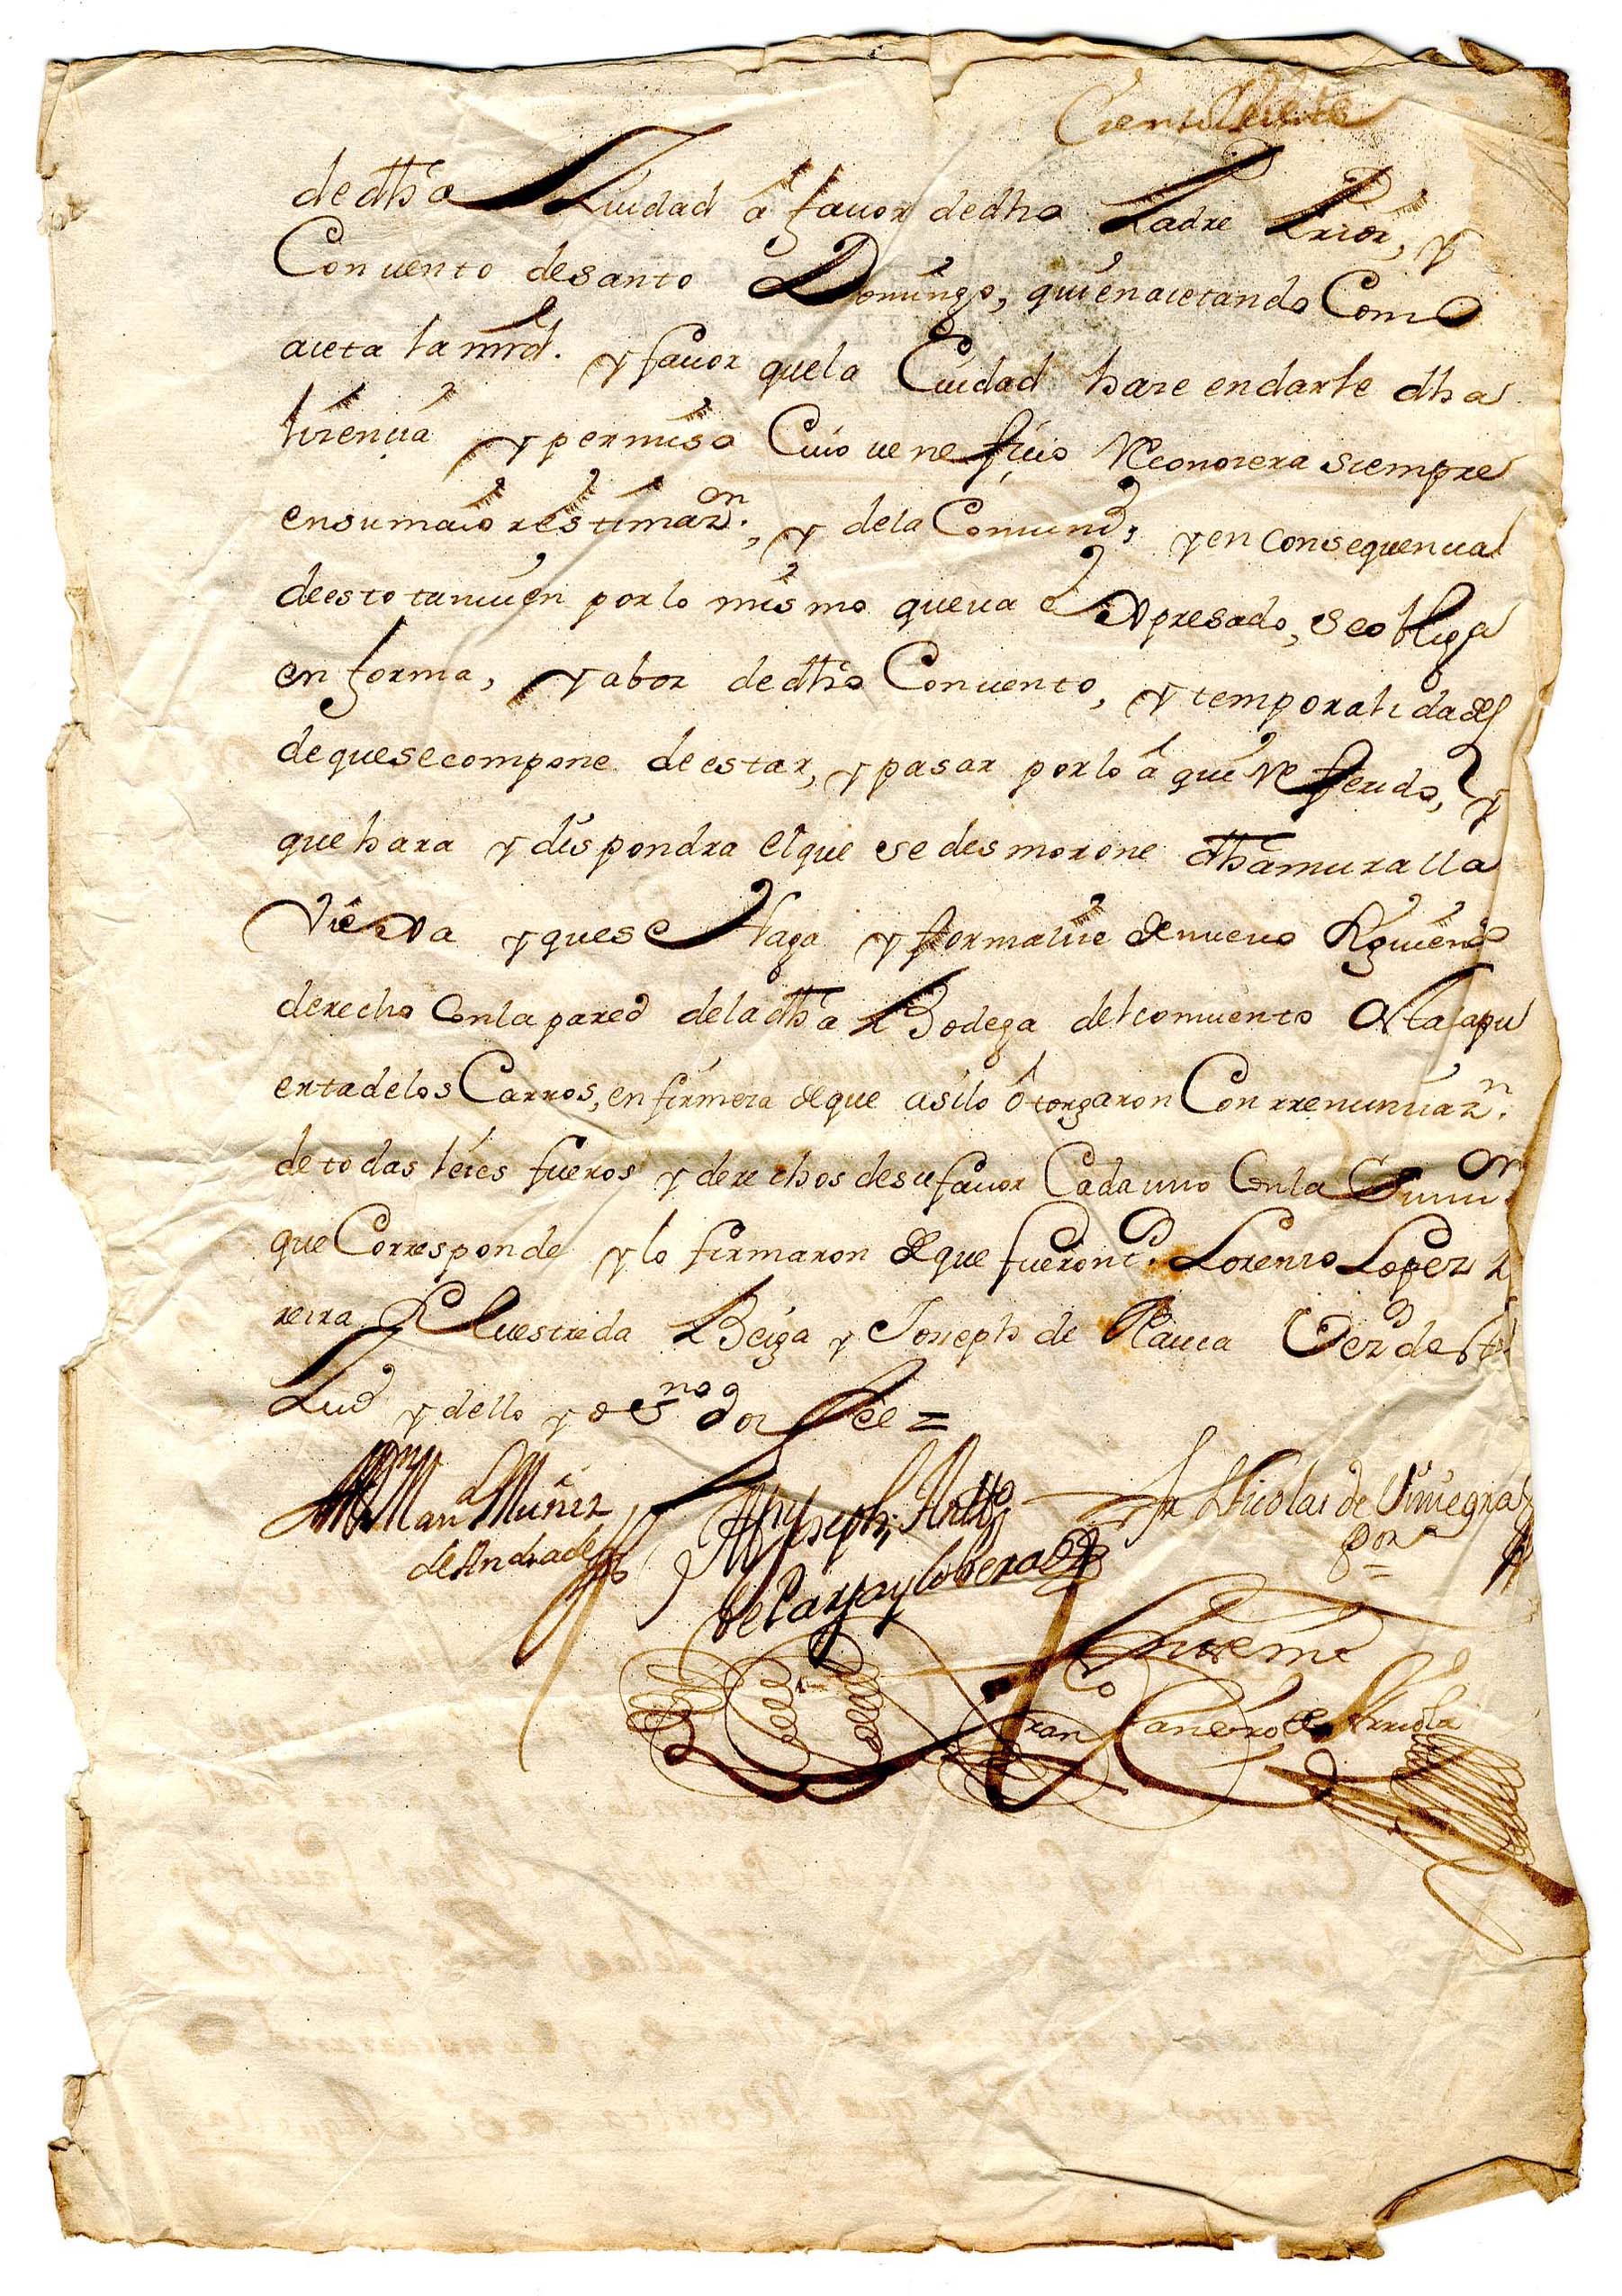 de dha Ciudad á fauor de dho Padre Prior, y
Conuento de santo Domingo, quien acetando Como
aceta la mrd. y fauor que la Ciudad haze en darle dha
lizencia y permiso Cuio uenefiçio Reconozera siempre
en su maior estimazon. y de la Comund, y en consequencia
de esto tamuien por lo mismo que ua expresado, se obliga
en forma, y a boz de dho Conuento, y temporalidades
de que se compone de estar, y pasar por lo á qui Referido, y
que hara y dispondra el que se desmorone dha muralla
Viexa y que se Haga y formalize de nuevo siguiendo
derecho Con la pared de la dha Bodega del conuento asta la pu
erta de los Carros, en firmeza de que asi lo ótorgaron Con rrenunciazn.
de todas léies fueros y derechos de su fauor Cada uno Con la
que Corresponde y lo firmaron de que fueron to. Lorenzo Lopez
reira Siluestre da Beiga y Joseph de Ciud
Ciud y dello yo esno doi fee =
Dn Manl Muñiz
de Andrade
Dn Joseph Antto
de Parga y lobera
Fr Nicolas de Uiniegra
Por
Ante mi
Franco Canedo de Arriola